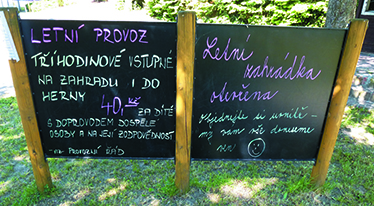 LETNÍ PROVOZ
TŘÍHODINOVÉ VSTUPNÉ
NA ZAHRADU I DO
HERNY
40,- Kč ZA DÍTĚ
S DOPROVODEM DOSPĚLÉ
OSOBY A NA JEJÍ ZODPOVĚDNOST
- viz PROVOZNÍ ŘÁD
Letní
zahrádka
otevřena
Objednejte si uvnitř -
my vám vše doneseme
ven